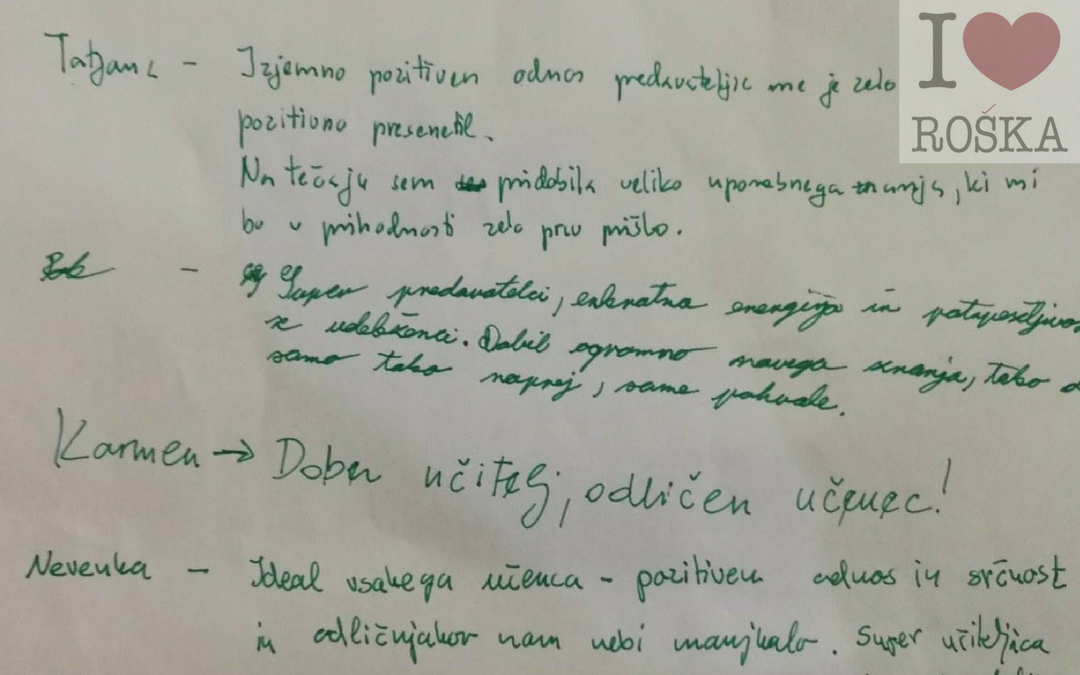 I ROŠKA
Tatjana - Izjemno pozitiven odnos predavateljic me je zelo
pozitivno presenetil.
Na tečaju sem pridobila veliko uporabnega znanja, ki mi
bo v prihodnosti zelo prav prišlo.
- Super predavatelci, enkratna energija in
z udeleženci. Dobil ogromno novega znanja, tako
samo tako naprej, same pohvale.
Karmen → Dober učitelj, odličen učenec!
Nevenka - Ideal vsakega učenca - pozitiven odnos in srčnost
in odličnjakov nam nebi manjkalo. Super učiteljica